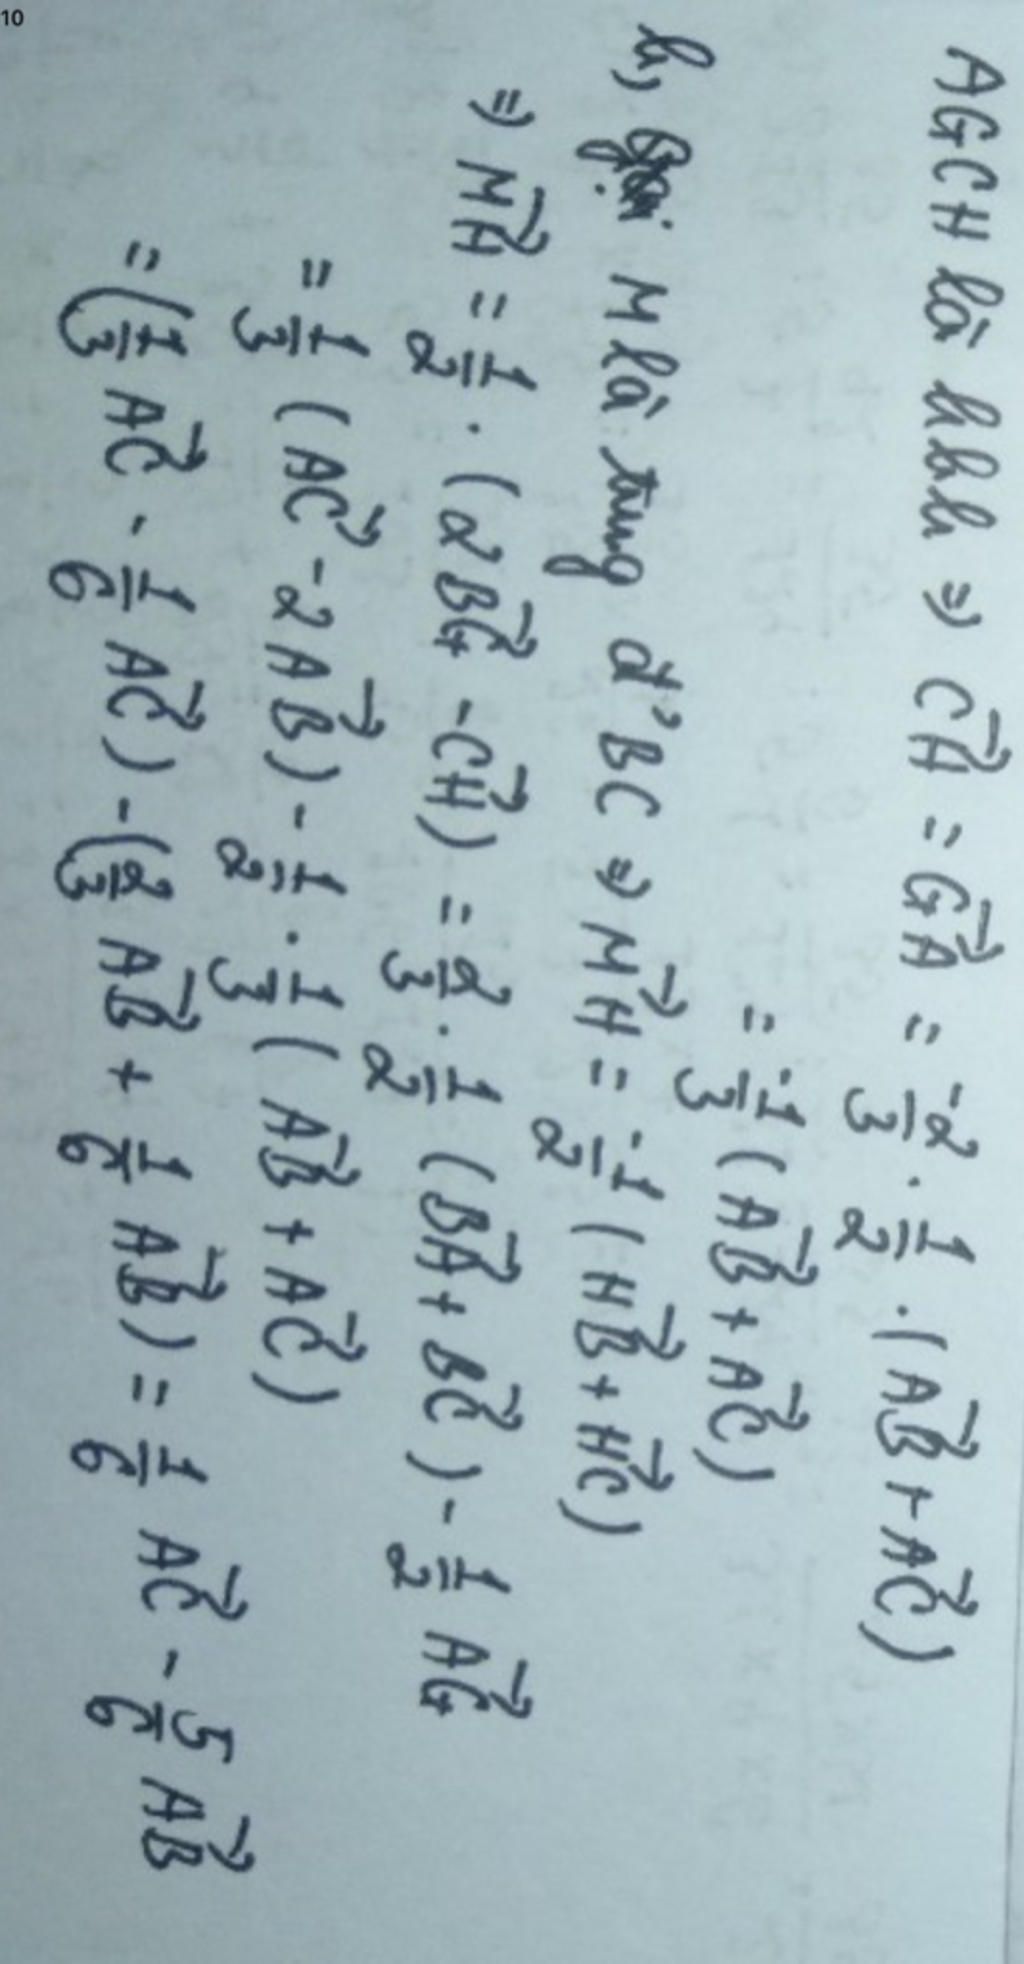 10
AGCH là hbh ⇒ \vec{CH} = \vec{GA} = \frac{-2}{3} . \frac{1}{2} . (\vec{AB} + \vec{AC})
= \frac{-1}{3} (\vec{AB} + \vec{AC})
b, gọi M là tung đ' BC ⇒ \vec{MH} = \frac{-1}{2} (\vec{HB} + \vec{HC})
⇒ \vec{MH} = \frac{1}{2} . (2\vec{BG} - \vec{CH}) = \frac{2}{3} . \frac{1}{2} (\vec{BA} + \vec{BC}) - \frac{1}{2} \vec{AG}
= \frac{1}{3} (\vec{AC} - 2\vec{AB}) - \frac{1}{2} . \frac{1}{3} (\vec{AB} + \vec{AC})
= (\frac{1}{3} \vec{AC} - \frac{1}{6} \vec{AC}) - (\frac{2}{3} \vec{AB} + \frac{1}{6} \vec{AB}) = \frac{1}{6} \vec{AC} - \frac{5}{6} \vec{AB}